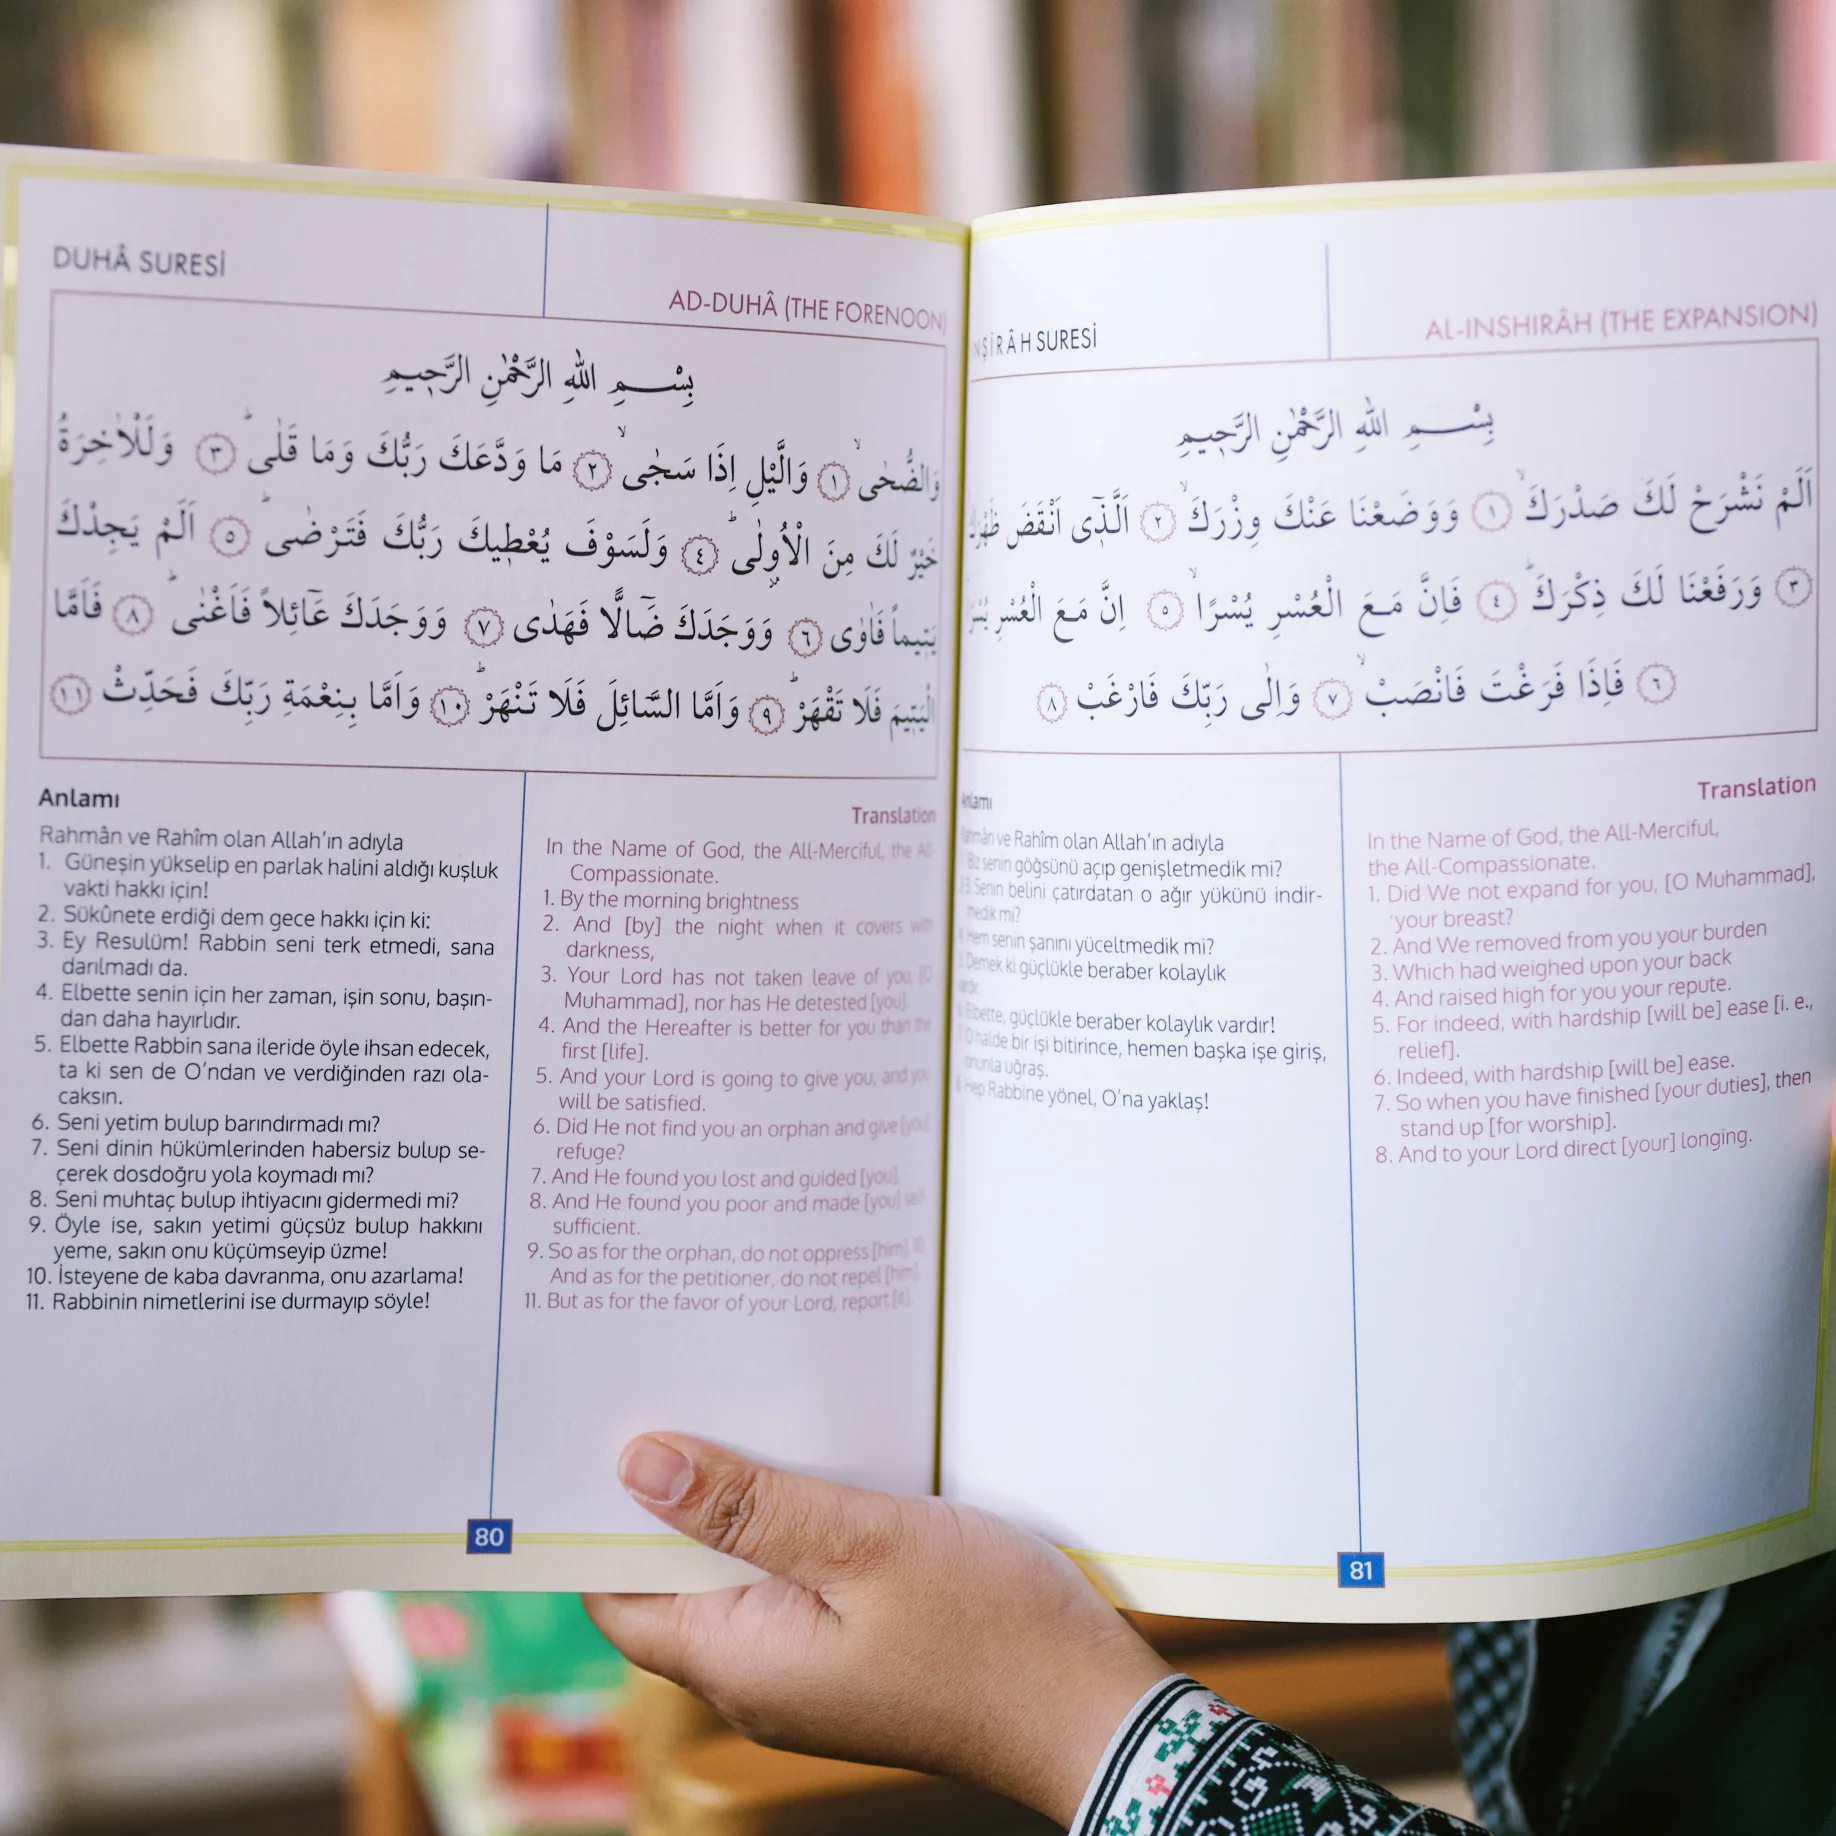 DUHÂ SURESİ
AD-DUHÂ (THE FORENOON)
بِسْمِ اللهِ الرَّحْمٰنِ الرَّحٖيمِ
وَالضُّحٰىۙ ﴿١﴾ وَالَّيْلِ اِذَا سَجٰىۙ ﴿٢﴾ مَا وَدَّعَكَ رَبُّكَ وَمَا قَلٰىؕ ﴿٣﴾ وَلَلْاٰخِرَةُ
خَيْرٌ لَكَ مِنَ الْاُولٰىؕ ﴿٤﴾ وَلَسَوْفَ يُعْطٖيكَ رَبُّكَ فَتَرْضٰىؕ ﴿٥﴾ اَلَمْ يَجِدْكَ
يَتٖيماً فَاٰوٰى ﴿٦﴾ وَوَجَدَكَ ضَٓالًّا فَهَدٰى ﴿٧﴾ وَوَجَدَكَ عَٓائِلاً فَاَغْنٰىؕ ﴿٨﴾ فَاَمَّا
الْيَتٖيمَ فَلَا تَقْهَرْؕ ﴿٩﴾ وَاَمَّا السَّائِلَ فَلَا تَنْهَرْؕ ﴿١٠﴾ وَاَمَّا بِنِعْمَةِ رَبِّكَ فَحَدِّثْ ﴿١١﴾
Anlamı
Rahmân ve Rahîm olan Allah’ın adıyla
1. Güneşin yükselip en parlak halini aldığı kuşluk
vakti hakkı için!
2. Sükûnete erdiği dem gece hakkı için ki:
3. Ey Resulüm! Rabbin seni terk etmedi, sana
darılmadı da.
4. Elbette senin için her zaman, işin sonu, başın-
dan daha hayırlıdır.
5. Elbette Rabbin sana ileride öyle ihsan edecek,
ta ki sen de O’ndan ve verdiğinden razı ola-
caksın.
6. Seni yetim bulup barındırmadı mı?
7. Seni dinin hükümlerinden habersiz bulup se-
çerek dosdoğru yola koymadı mı?
8. Seni muhtaç bulup ihtiyacını gidermedi mi?
9. Öyle ise, sakın yetimi güçsüz bulup hakkını
yeme, sakın onu küçümseyip üzme!
10. İsteyene de kaba davranma, onu azarlama!
11. Rabbinin nimetlerini ise durmayıp söyle!
Translation
In the Name of God, the All-Merciful, the All-
Compassionate.
1. By the morning brightness
2. And [by] the night when it covers with
darkness,
3. Your Lord has not taken leave of you, [O
Muhammad], nor has He detested [you].
4. And the Hereafter is better for you than the
first [life].
5. And your Lord is going to give you, and you
will be satisfied.
6. Did He not find you an orphan and give [you]
refuge?
7. And He found you lost and guided [you].
8. And He found you poor and made [you] self-
sufficient.
9. So as for the orphan, do not oppress [him]. 10.
And as for the petitioner, do not repel [him].
11. But as for the favor of your Lord, report [it].
80
NŞİRÂH SURESİ
AL-INSHIRÂH (THE EXPANSION)
بِسْمِ اللهِ الرَّحْمٰنِ الرَّحٖيمِ
اَلَمْ نَشْرَحْ لَكَ صَدْرَكَۙ ﴿١﴾ وَوَضَعْنَا عَنْكَ وِزْرَكَۙ ﴿٢﴾ اَلَّذٖٓى اَنْقَضَ ظَهْرَكَ
﴿٣﴾ وَرَفَعْنَا لَكَ ذِكْرَكَؕ ﴿٤﴾ فَاِنَّ مَعَ الْعُسْرِ يُسْرًاۙ ﴿٥﴾ اِنَّ مَعَ الْعُسْرِ يُسْرًا
﴿٦﴾ فَاِذَا فَرَغْتَ فَانْصَبْۙ ﴿٧﴾ وَاِلٰى رَبِّكَ فَارْغَبْ ﴿٨﴾
Anlamı
Rahmân ve Rahîm olan Allah’ın adıyla
Biz senin göğsünü açıp genişletmedik mi?
Senin belini çatırdatan o ağır yükünü indir-
medik mi?
Hem senin şanını yüceltmedik mi?
Demek ki güçlükle beraber kolaylık
vardır.
Elbette, güçlükle beraber kolaylık vardır!
O halde bir işi bitirince, hemen başka işe giriş,
onunla uğraş.
Hep Rabbine yönel, O’na yaklaş!
Translation
In the Name of God, the All-Merciful,
the All-Compassionate.
1. Did We not expand for you, [O Muhammad],
your breast?
2. And We removed from you your burden
3. Which had weighed upon your back
4. And raised high for you your repute.
5. For indeed, with hardship [will be] ease [i. e.,
relief].
6. Indeed, with hardship [will be] ease.
7. So when you have finished [your duties], then
stand up [for worship].
8. And to your Lord direct [your] longing.
81